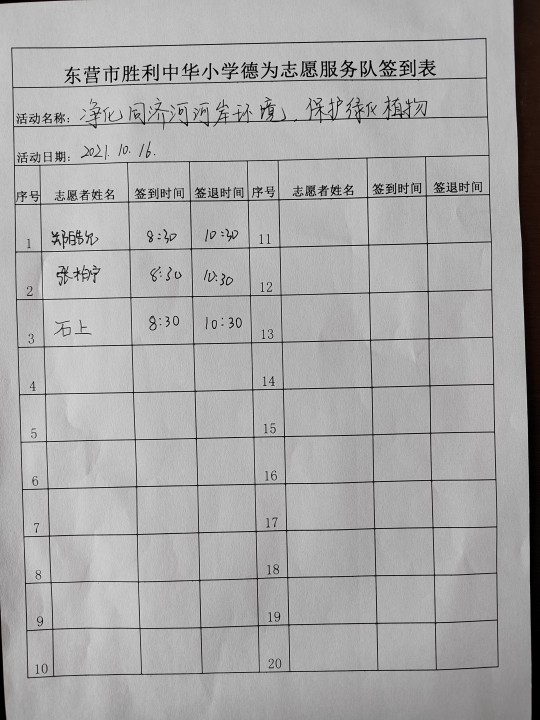 东营市胜利中华小学德为志愿服务队签到表
活动名称：净化同济河河岸环境、保护绿化植物
活动日期：2021.10.16.
序号 志愿者姓名 签到时间 签退时间 序号 志愿者姓名 签到时间 签退时间
1 郑皓允 8:30 10:30 11
2 张柏宁 8:30 10:30 12
3 石上 8:30 10:30 13
4 14
5 15
6 16
7 17
8 18
9 19
10 20